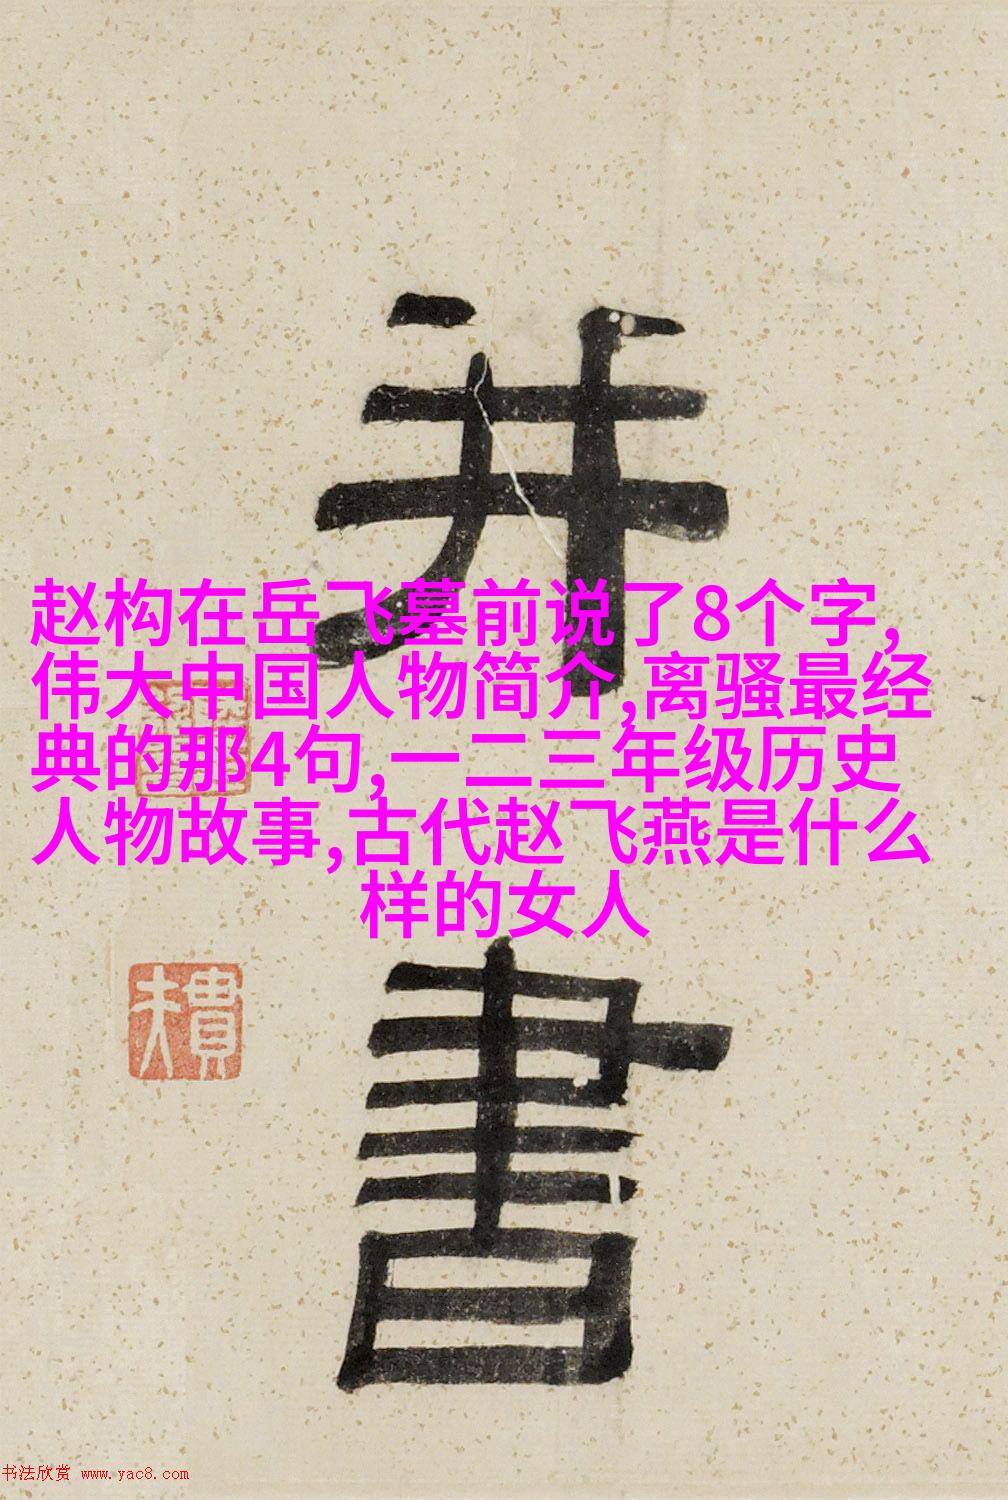 并
赵构在岳飞墓前说了8个字,
伟大中国人物简介,离骚最经
典的那4句,一二三年级历史
人物故事,古代赵飞燕是什么
样的女人
書
书法欣赏 www.yac8.com